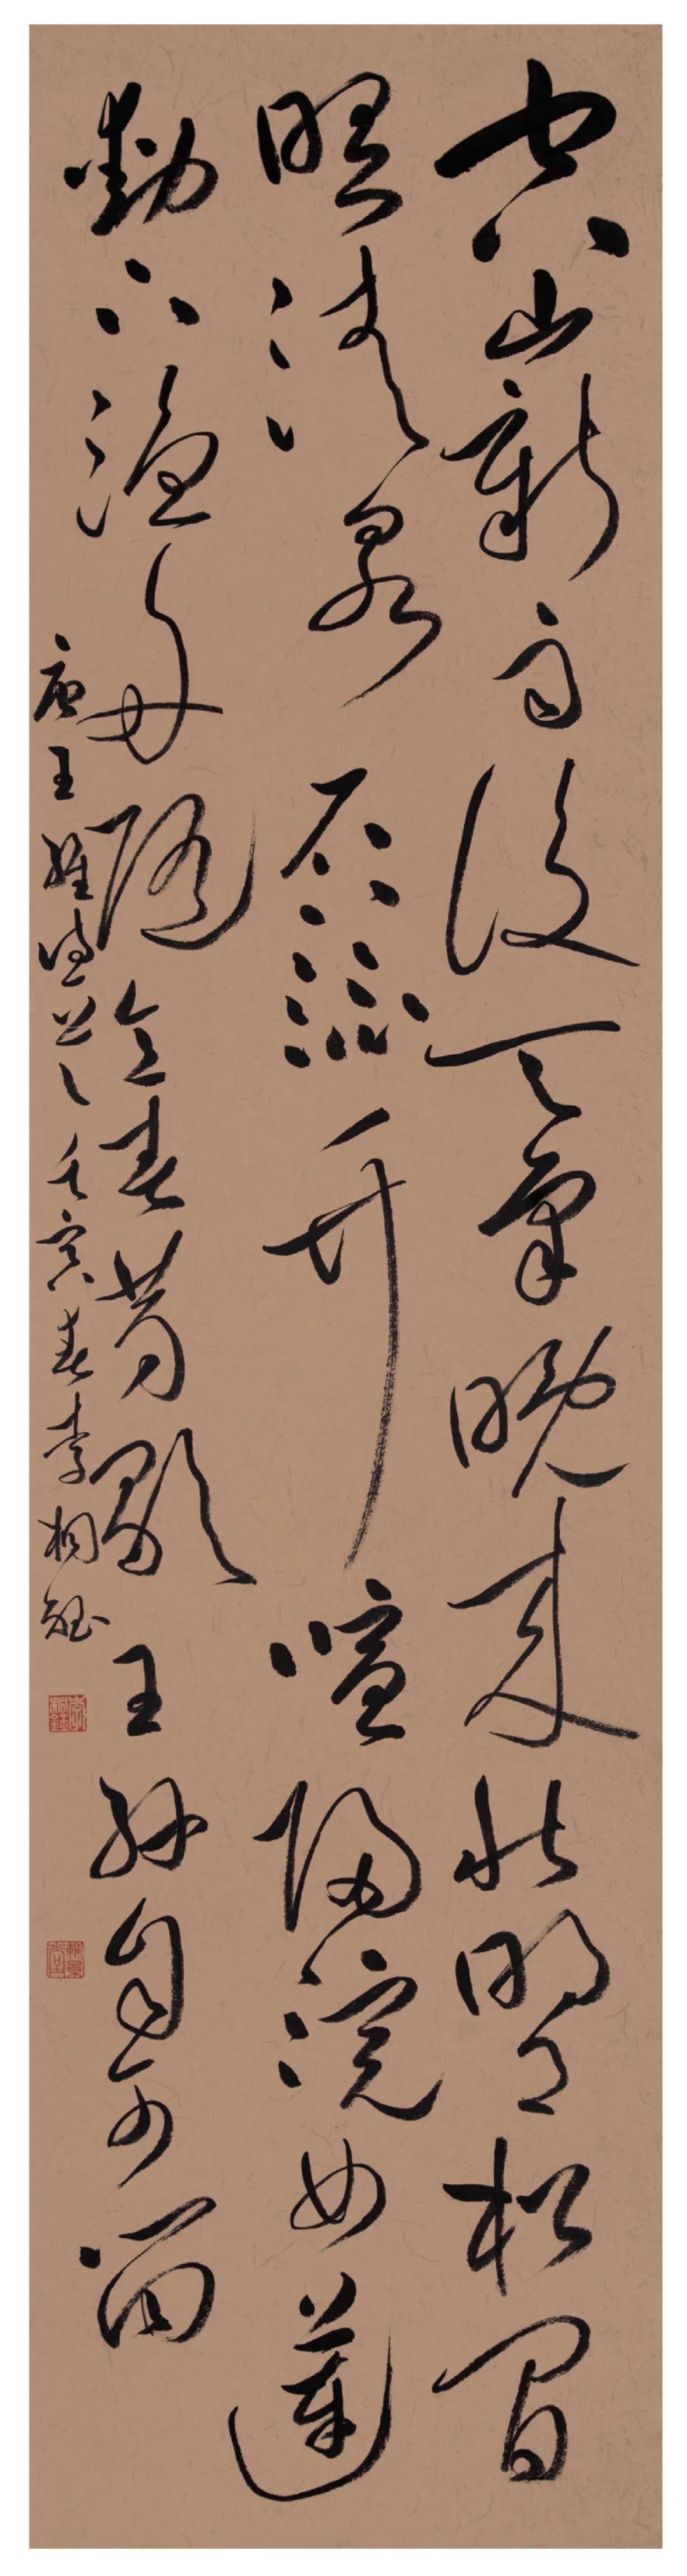 空山新雨後天氣晚來秋明月松間
照清泉石上流竹喧歸浣女蓮
動下漁舟隨意春芳歇王孫自可留
唐王維詩一首壬寅春李桐鈺